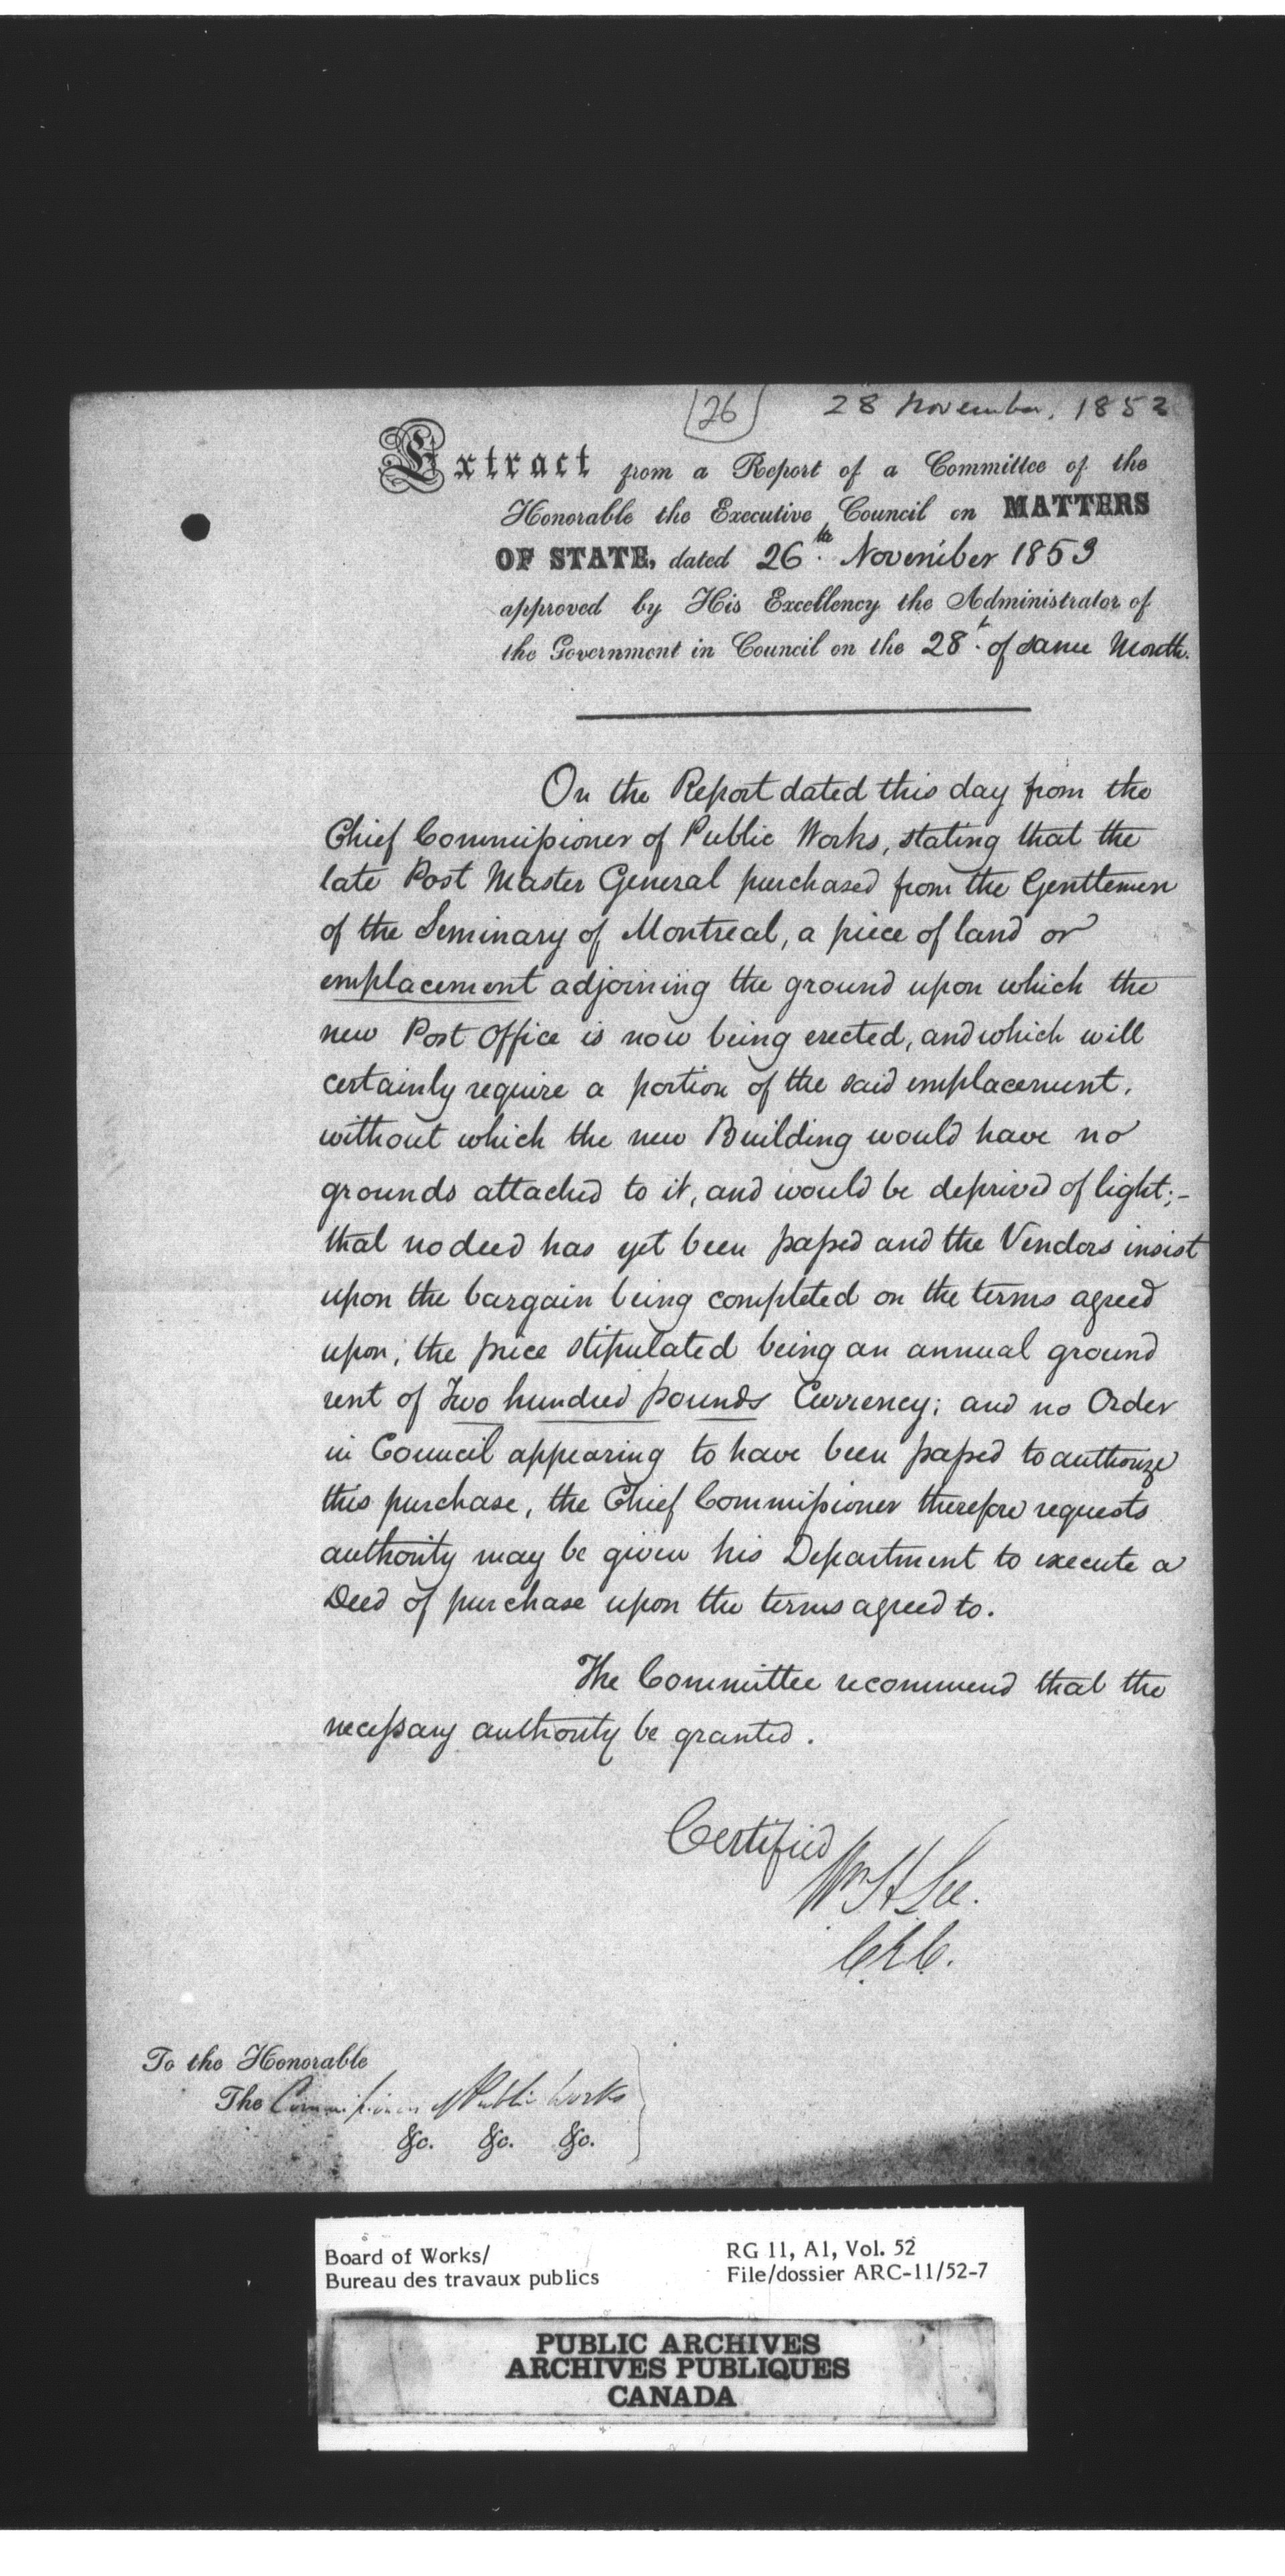 26
28 November, 1853
Extract from a Report of a Committee of the
Honorable the Executive Council on MATTERS
OF STATE, dated 26th. November 1853
approved by His Excellency the Administrator of
the Government in Council on the 28t. of same Month.
On the Report dated this day from the
Chief Commissioner of Public Works, stating that the
late Post Master General purchased from the Gentlemen
of the Seminary of Montreal, a piece of land or
emplacement adjoining the ground upon which the
new Post Office is now being erected, and which will
certainly require a portion of the said emplacement,
without which the new Building would have no
grounds attached to it, and would be deprived of light;-
that no deed has yet been passed and the Vendors insist
upon the bargain being completed on the terms agreed
upon, the price stipulated being an annual ground
rent of Two hundred pounds Currency; and no Order
in Council appearing to have been passed to authorize
this purchase, the Chief Commissioner therefore requests
authority may be given his Department to execute a
Deed of purchase upon the terms agreed to.
The Committee recommend that the
necessary authority be granted.
Certified
Wm H Lee.
C.E.C.
To the Honorable
The Commissioners of Public Works
&c. &c. &c.
Board of Works/
Bureau des travaux publics
RG 11, A1, Vol. 52
File/dossier ARC-11/52-7
PUBLIC ARCHIVES
ARCHIVES PUBLIQUES
CANADA